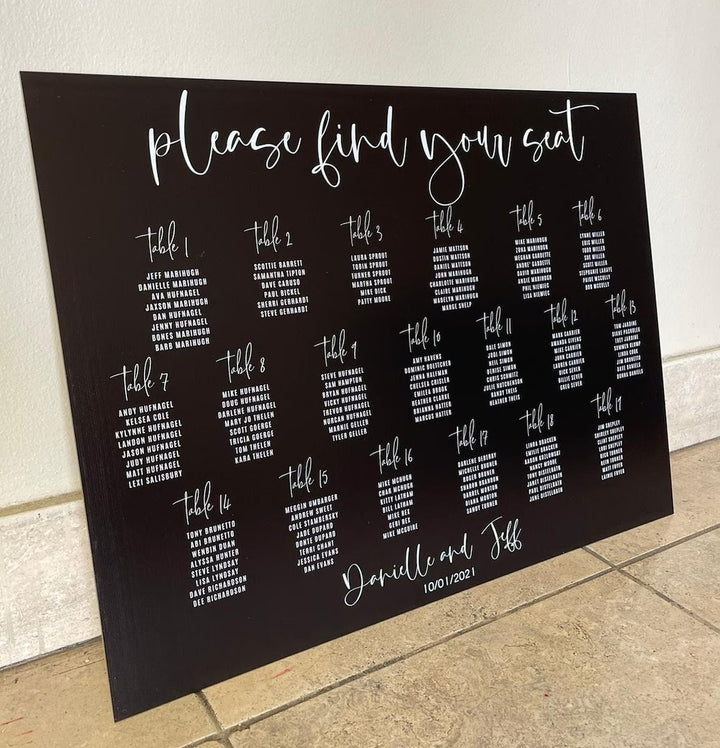 please find your seat
table 1
JEFF MARIHUGH
DANIELLE MARIHUGH
AVA HUFNAGEL
JAXSON MARIHUGH
DAN HUFNAGEL
JENNY HUFNAGEL
BONES MARIHUGH
BARB MARIHUGH
table 2
SCOTTIE BARRETT
SAMANTHA TIPTON
DAVE CARUSO
PAUL BICKEL
SHERRI GERHARDT
STEVE GERHARDT
table 3
LAURA SPROUT
TOBIN SPROUT
TURNER SPROUT
MARTHA SPROUT
MIKE DICK
PATTY MOORE
table 4
JAMIE MATTSON
DUSTIN MATTSON
DANIEL MATTSON
JOHN MARIHUGH
CHARLOTTE MARIHUGH
CLAIRE MARIHUGH
MADELYN MARIHUGH
MARK SHELP
table 5
MIKE MARIHUGH
ZORA MARIHUGH
MEGHAN GAUDETTE
ANDRE' LESSARD
DAVID MARIHUGH
ANGIE MARIHUGH
PHIL NIEMIER
LISA NIEMIER
table 6
LYNNE MILLER
ERIC MILLER
TODD MILLER
LEE MILLER
SCOTT MILLER
STEPHANIE LARAYE
PAIGE MCCULLY
ROB MCCULLY
table 7
ANDY HUFNAGEL
KELSEA COLE
KYLYNNE HUFNAGEL
LANDON HUFNAGEL
JASON HUFNAGEL
JUDY HUFNAGEL
MATT HUFNAGEL
LEXI SALISBURY
table 8
MIKE HUFNAGEL
DOUG HUFNAGEL
DARLENE HUFNAGEL
MARY JO THELEN
SCOTT GOERGE
TRICIA GOERGE
TOM THELEN
KARA THELEN
table 9
STEVE HUFNAGEL
SAM HAMPTON
BRYAN HUFNAGEL
VICKY HUFNAGEL
TREVOR HUFNAGEL
MORGAN HUFNAGEL
MARNIE GELLER
TYLER GELLER
table 10
AMY HAVENS
DOMINIC BOETTCHER
JENNA HALEMAN
CHELSEA CRISLER
MILEA BROOK
HEATHER CLARKE
BRIANNA HUTTER
MARCUS BOWERS
table 11
DALE SIMON
GAIL SIMON
NEIL SIMON
DENISE SIMON
CHRIS SCHERER
JULIE HUTCHENSON
RANDY THEIS
HEATHER THEIS
table 12
MARK CARRIER
WANDA GIVENS
MIKE CARRIER
JOHN CARRIER
LAUREN CARRIER
DICK SEYER
OLLIE SEYER
GREG SEYER
table 13
TOM JARDINE
TREY JARDINE
SUMMER KLEMP
LINDA COOK
JIM BRUNETTO
DAVE DANIELS
DONNA DANIELS
table 14
TONY BRUNETTO
ARI BRUNETTO
WENDIN DUAN
ALYSSA HUNTER
STEVE LYNDSAY
LISA LYNDSAY
DAVE RICHARDSON
DEE RICHARDSON
table 15
MEGGIN UMBARGER
ANDREW SWEET
COLE STAMBERSKY
JADE DUPARD
DONTE DUPARD
TERRI CHANT
JESSICA EVANS
DAN EVANS
table 16
MIKE MCNUGH
CHAR MCNUGH
KITTY LATHAM
BILL LATHAM
MIKE DEE
GERI DEE
MIKE MCGUIRE
table 17
DARLENE DEBERRY
MICHELLE BRUNER
ROGER HOOVER
SHARON BRANDON
HARREL MORTON
DIANA MORTON
SANDY TURNER
table 18
LORA BRACKEN
EMILIE BRACKEN
JASON KOZLOWSKI
NANCY HONKE
TONY DISTELRATH
JANET DISTELRATH
PAUL DISTELRATH
JANE DISTELRATH
table 19
JIM SHEPLEY
SHIRLEY SHEPLEY
CLINT SHEPLEY
LORI SHEPLEY
RICK TURNER
BETH TURNER
MATT FOVER
LAINIE FOVER
Danielle and Jeff
10/01/2021